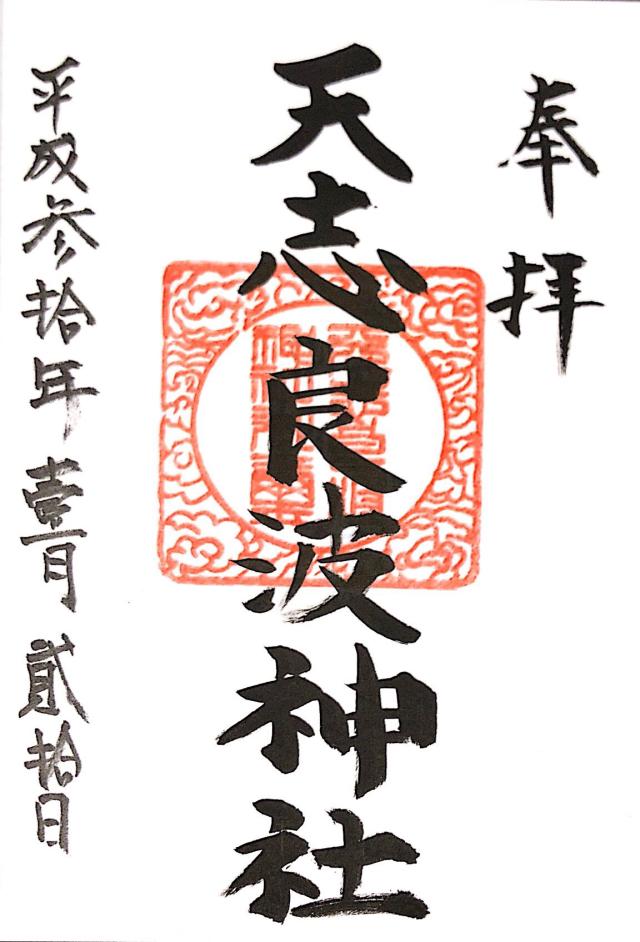 奉拝
天志良波神社
平成参拾年壹月貳拾日